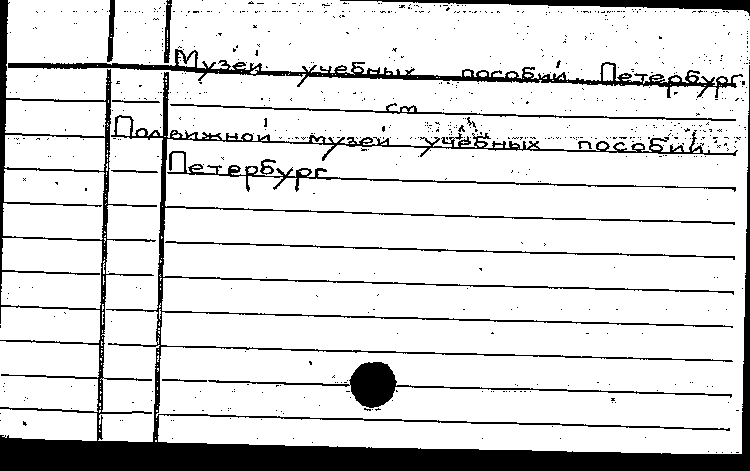 Музей учебных пособий. Петербург.
см
Подвижной музей учебных пособий.
Петербург.